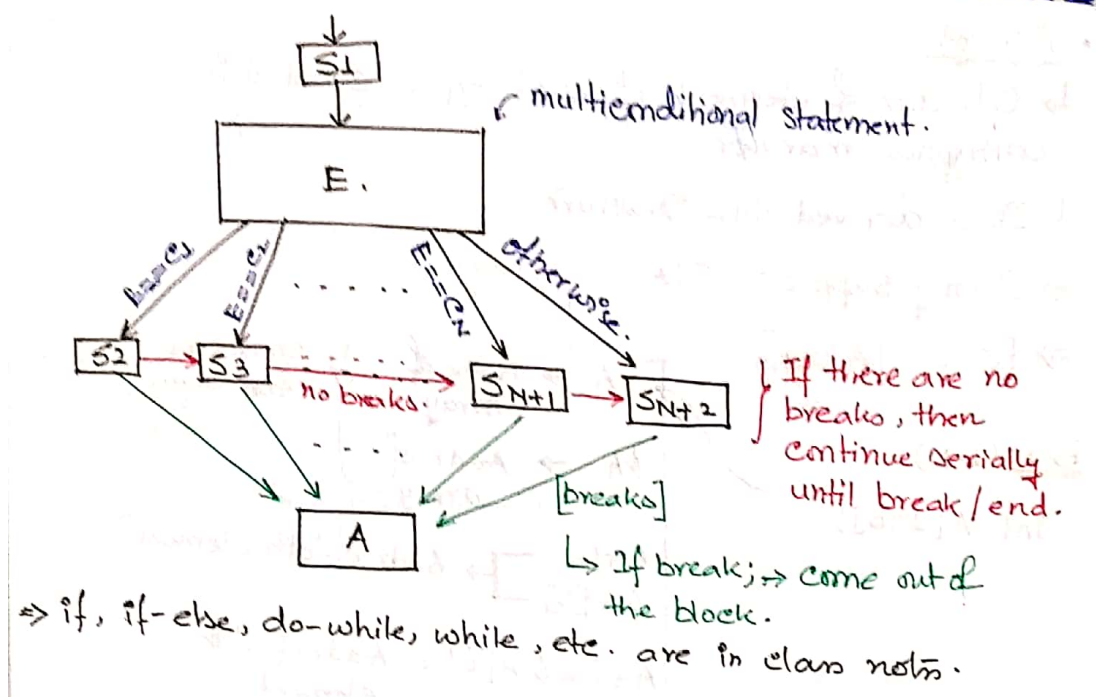 S1
multiconditional statement.
E.
E==C1
E==C2
. . . . . .
E==CN
otherwise.
S2
S3
. . . . . .
no breaks.
SN+1
SN+2
If there are no
breaks, then
continue serially
until break/end.
. . . . .
[breaks]
A
↳ If break; → come out of
the block.
⇒ if, if-else, do-while, while, etc. are in class notes.